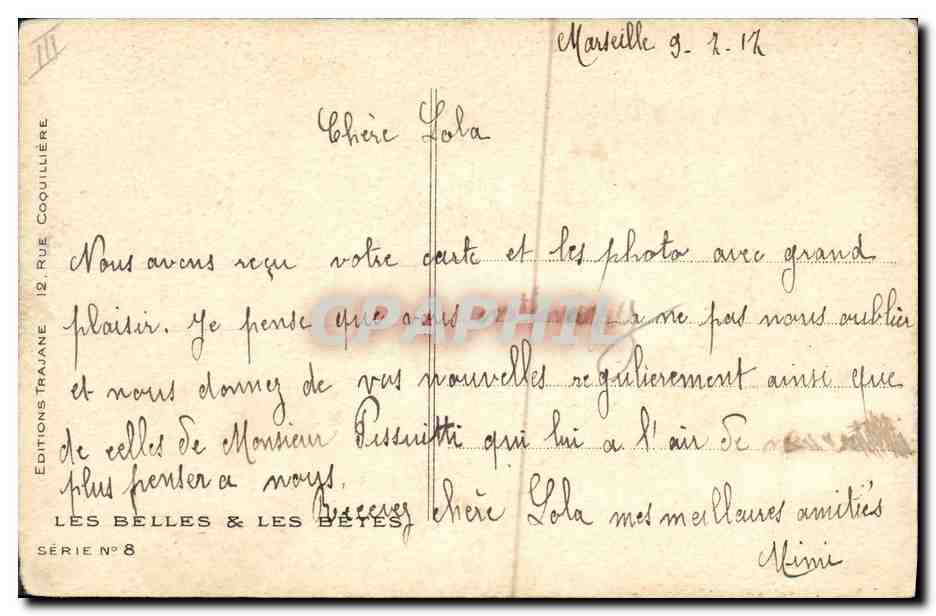 III
Marseille 9-2-12
Chère Lola
Nous avons reçu votre carte et les photo avec grand
plaisir. Je pense que ne pas nous oublier
et nous donnez de vos nouvelles regulierement ainsi que
de celles de Monsieur qui lui a l'air de
plus penser a nous.
Recevez chère Lola mes meilleures amitiés
Mimi
EDITIONS TRAJANE 12, RUE COQUILLIÈRE
LES BELLES & LES BÊTES
SÉRIE Nº 8
CPAPHIL